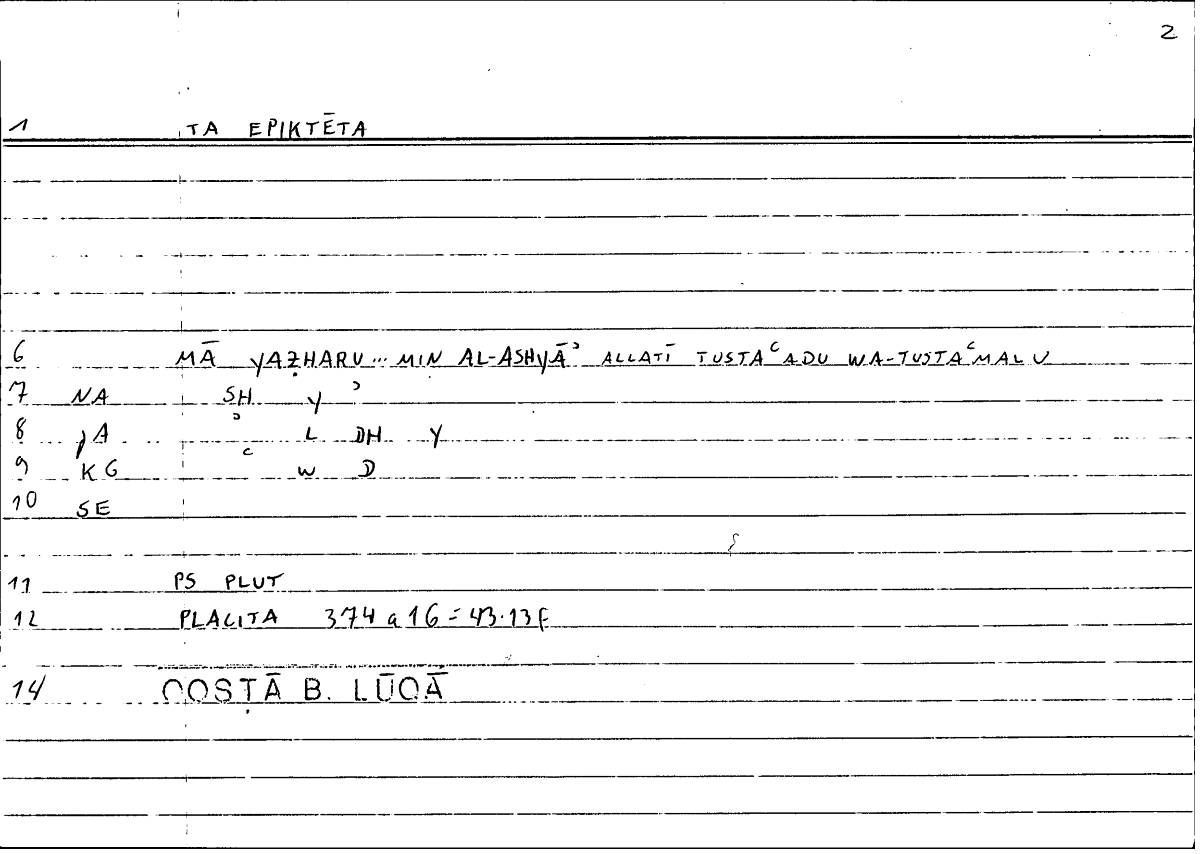 2
1 TA EPIKTĒTA
6 MĀ YAẒHARU... MIN AL-ASHYĀʾ ALLATĪ TUSTAʿADU WA-TUSTAʿMALU
7 NA SH Y ʾ
8 JA ʾ L DH Y
9 KG ʿ W D
10 SE
11 PS PLUT
12 PLACITA 374 a 16 = 43.13 f
14 QOSṬĀ B. LŪQĀ